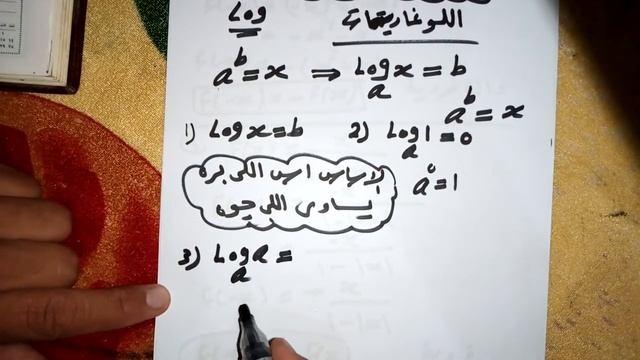 Log اللوغاريتمات
a^b = x ⇒ Log_a x = b
a^b = x
1) Log x = b 2) Log_a 1 = 0
a^0 = 1
الاساس اس اللي بره
يساوى اللي جوه
3) Log_a a =